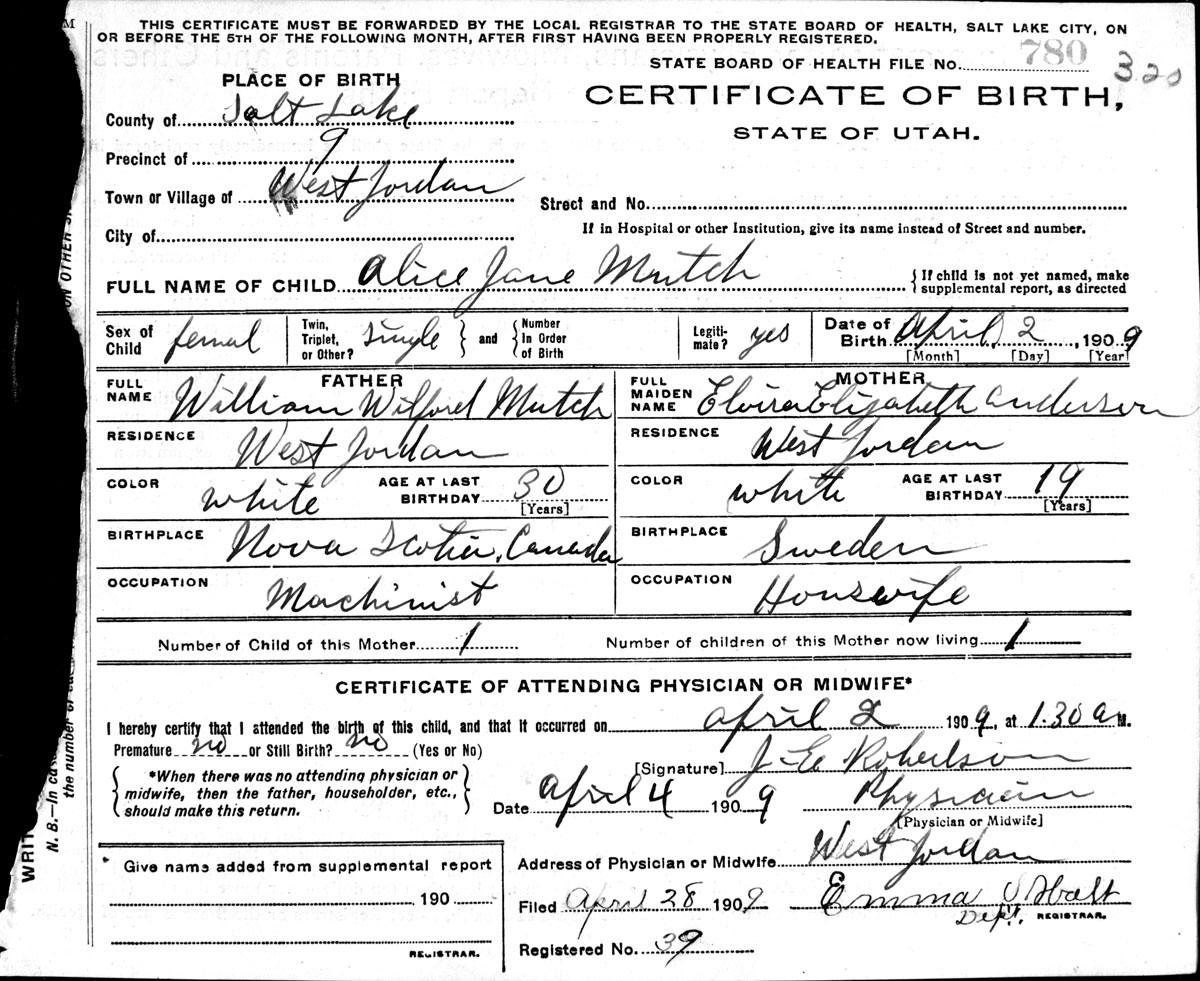 THIS CERTIFICATE MUST BE FORWARDED BY THE LOCAL REGISTRAR TO THE STATE BOARD OF HEALTH, SALT LAKE CITY, ON
OR BEFORE THE 5TH OF THE FOLLOWING MONTH, AFTER FIRST HAVING BEEN PROPERLY REGISTERED.
STATE BOARD OF HEALTH FILE No. 780 320
PLACE OF BIRTH
CERTIFICATE OF BIRTH,
STATE OF UTAH.
County of Salt Lake
Precinct of 9
Town or Village of West Jordan
Street and No.
City of
If in Hospital or other Institution, give its name instead of Street and number.
FULL NAME OF CHILD Alice Jane Mutch {If child is not yet named, make supplemental report, as directed
Sex of Child femal Twin, Triplet, or Other? Single } and { Number In Order of Birth Legiti-mate? yes Date of Birth April 2, 1909
[Month] [Day] [Year]
FATHER MOTHER
FULL NAME William Wilford Mutch FULL MAIDEN NAME Elvira Elizabeth Anderson
RESIDENCE West Jordan RESIDENCE West Jordan
COLOR white AGE AT LAST BIRTHDAY 30 [Years] COLOR white AGE AT LAST BIRTHDAY 19 [Years]
BIRTHPLACE Nova Scotia, Canada BIRTHPLACE Sweden
OCCUPATION Machinist OCCUPATION Housewife
Number of Child of this Mother 1 Number of children of this Mother now living 1
CERTIFICATE OF ATTENDING PHYSICIAN OR MIDWIFE*
I hereby certify that I attended the birth of this child, and that it occurred on April 2 1909, at 1.30 a M.
Premature no or Still Birth? no (Yes or No)
[Signature] J E Robertson
{*When there was no attending physician or midwife, then the father, householder, etc., should make this return.}
Date April 4 1909 Physician
[Physician or Midwife]
Address of Physician or Midwife West Jordan
Give name added from supplemental report
190
REGISTRAR.
Filed April 28 1909 Emma
Dept. REGISTRAR.
Registered No. 39
ON OTHER
N. B.—In
the number of
WRIT